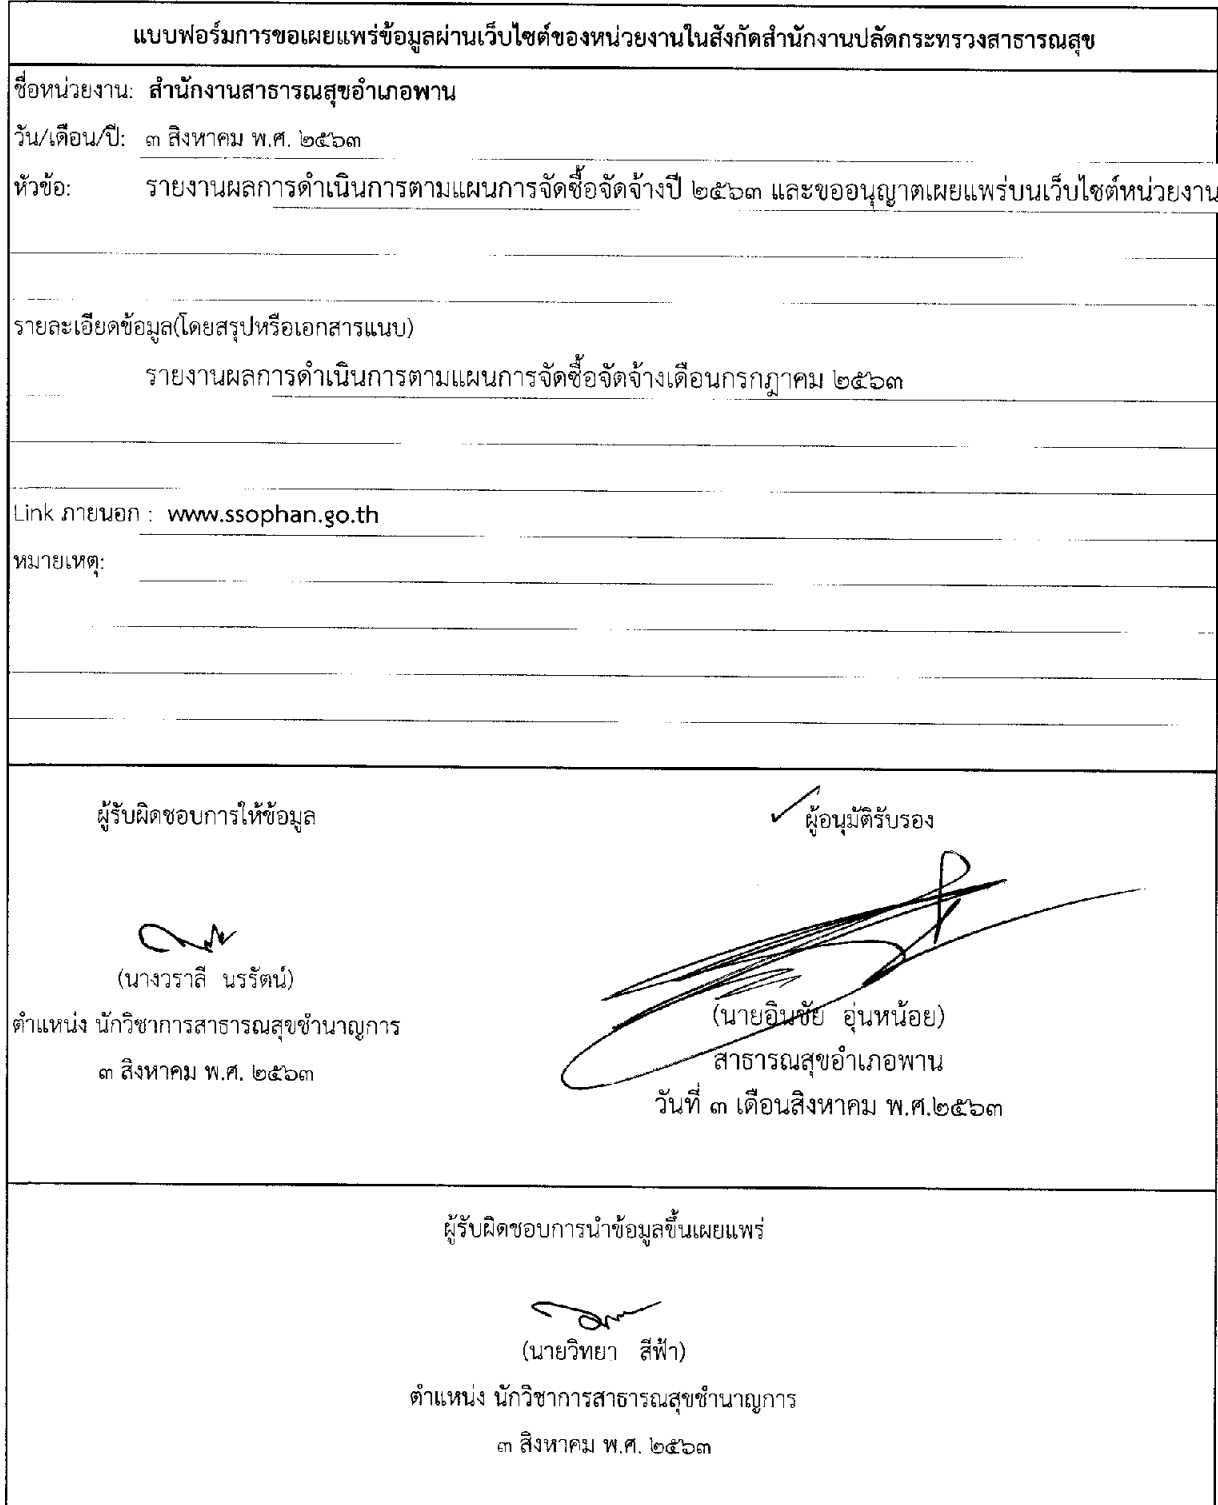 แบบฟอร์มการขอเผยแพร่ข้อมูลผ่านเว็บไซต์ของหน่วยงานในสังกัดสำนักงานปลัดกระทรวงสาธารณสุข
ชื่อหน่วยงาน: สำนักงานสาธารณสุขอำเภอพาน
วัน/เดือน/ปี: ๓ สิงหาคม พ.ศ. ๒๕๖๓
หัวข้อ: รายงานผลการดำเนินการตามแผนการจัดซื้อจัดจ้างปี ๒๕๖๓ และขออนุญาตเผยแพร่บนเว็บไซต์หน่วยงาน
รายละเอียดข้อมูล(โดยสรุปหรือเอกสารแนบ)
รายงานผลการดำเนินการตามแผนการจัดซื้อจัดจ้างเดือนกรกฎาคม ๒๕๖๓
Link ภายนอก : www.ssophan.go.th
หมายเหตุ:
ผู้รับผิดชอบการให้ข้อมูล
(นางวราลี นรรัตน์)
ตำแหน่ง นักวิชาการสาธารณสุขชำนาญการ
๓ สิงหาคม พ.ศ. ๒๕๖๓
ผู้อนุมัติรับรอง
(นายอินชัย อุ่นหน้อย)
สาธารณสุขอำเภอพาน
วันที่ ๓ เดือนสิงหาคม พ.ศ.๒๕๖๓
ผู้รับผิดชอบการนำข้อมูลขึ้นเผยแพร่
(นายวิทยา สีฟ้า)
ตำแหน่ง นักวิชาการสาธารณสุขชำนาญการ
๓ สิงหาคม พ.ศ. ๒๕๖๓